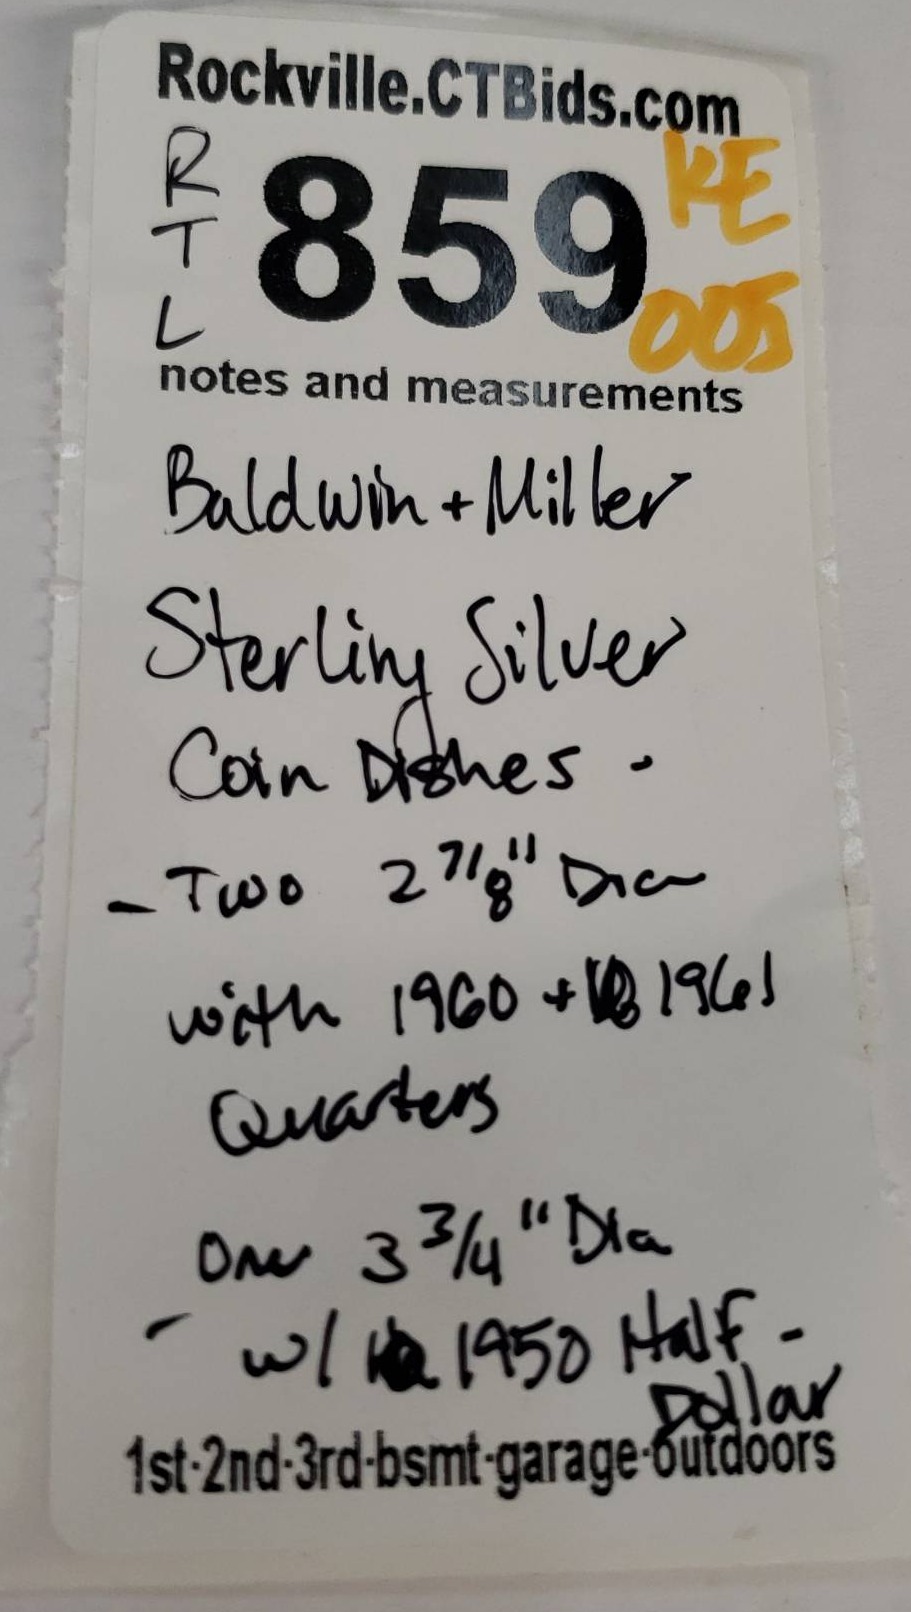 Rockville.CTBids.com
R
T
L
859
KE
005
notes and measurements
Baldwin + Miller
Sterling Silver
Coin Dishes .
- Two 2 7/8" Dia
with 1960 + 1961
Quarters
One 3 3/4" Dia
- w/ 1950 Half -
Dollar
1st·2nd·3rd·bsmt·garage·outdoors